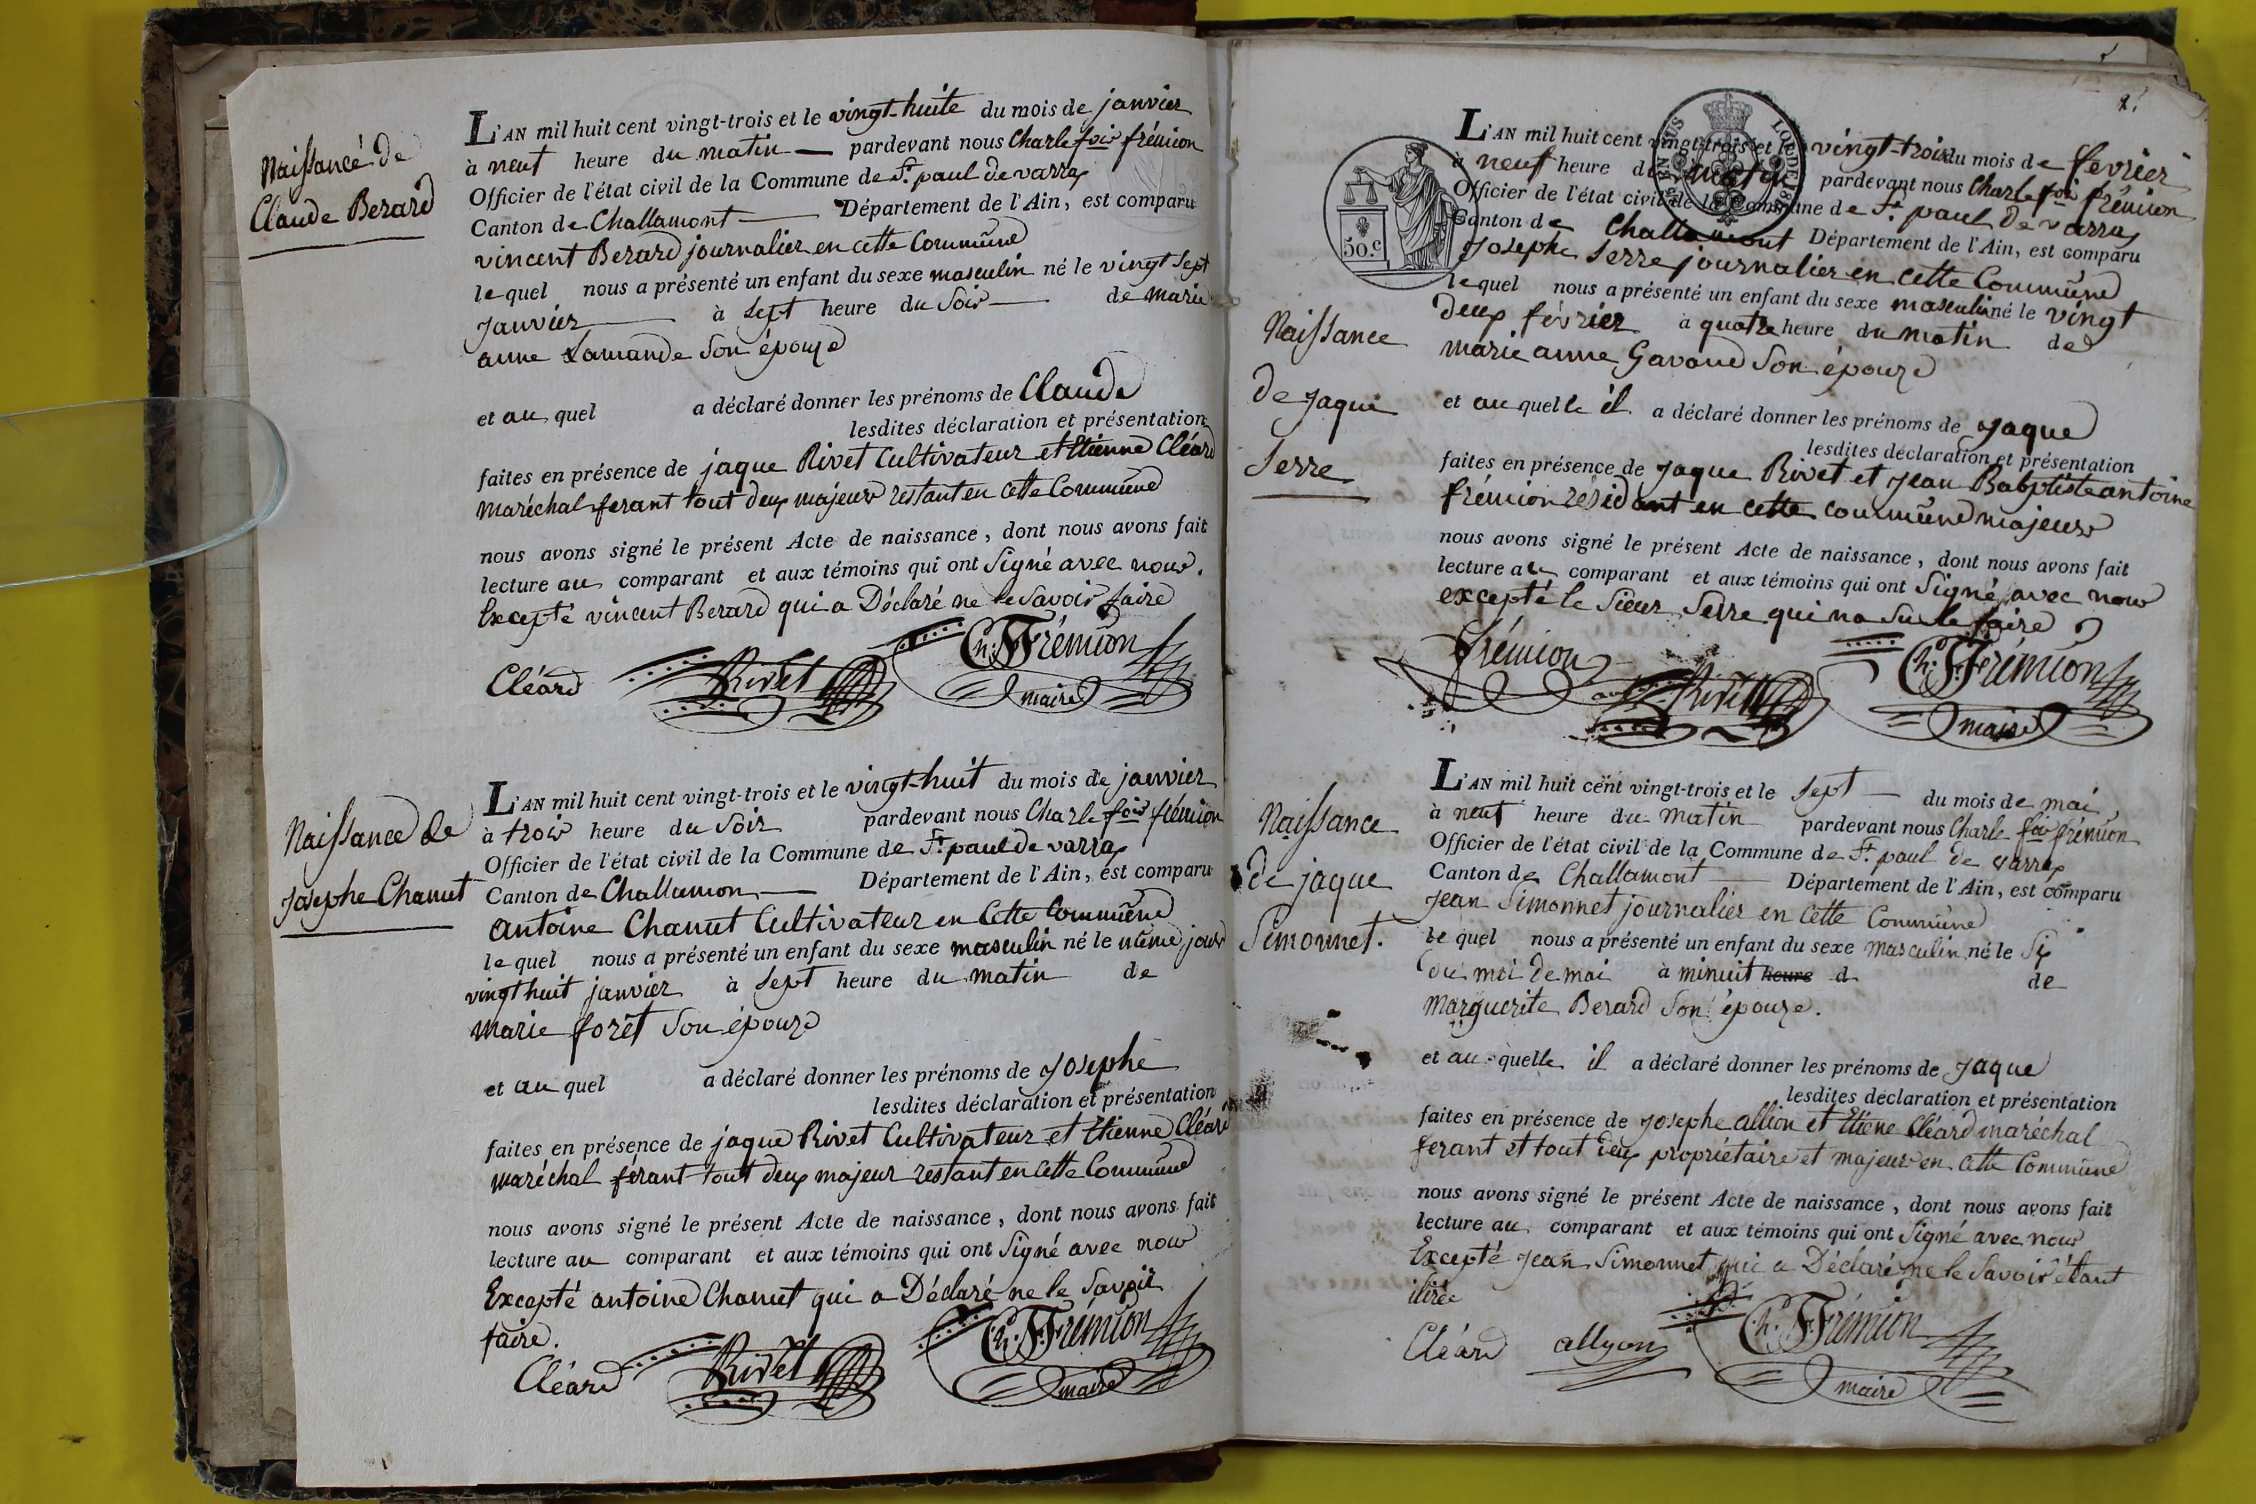 Naissance de
Claude Berard
L'AN mil huit cent vingt-trois et le vingt-huite du mois de janvier
à neuf heure du matin pardevant nous Charle fois frémion
Officier de l'état civil de la Commune de St. paul de varrax
Canton de Challamont Département de l'Ain, est comparu
vincent Berard journalier en cette Commune
le quel nous a présenté un enfant du sexe masculin né le vingt sept
janvier à sept heure du Soir de marie
anne Lamande Son épouze
et au quel a déclaré donner les prénoms de Claude
lesdites déclaration et présentation
faites en présence de jaque Rivet Cultivateur et Etienne Cléard
maréchal ferant tout deux majeur restant en cette Commune
nous avons signé le présent Acte de naissance, dont nous avons fait
lecture au comparant et aux témoins qui ont Signé avec nous.
Excepté vincent Berard qui a Déclaré ne le Savoir faire
Cléard Rivet Ch. F. Frémion
maire
Naissance de
Josephe Chanut
L'AN mil huit cent vingt-trois et le vingt-huit du mois de janvier
à trois heure du Soir pardevant nous Charle fois frémion
Officier de l'état civil de la Commune de St. paul de varrax
Canton de Challamon Département de l'Ain, est comparu
antoine Chanut Cultivateur en Cette Commune
le quel nous a présenté un enfant du sexe masculin né le même jour
vingt huit janvier à sept heure du matin de
marie forêt Son épouze
et au quel a déclaré donner les prénoms de Josephe
lesdites déclaration et présentation
faites en présence de jaque Rivet Cultivateur et Etienne Cléard
maréchal férant tout deux majeur restant en Cette Commune
nous avons signé le présent Acte de naissance, dont nous avons fait
lecture au comparant et aux témoins qui ont Signé avec nous
Excepté antoine Chanut qui a Déclaré ne le Savoir
faire.
Cléard Rivet Ch. F. Frémion
maire
2.
50.c
Naissance
de Jaque
Serre
L'AN mil huit cent vingt-trois et le vingt-trois du mois de février
à neuf heure du matin pardevant nous Charle fois frémion
Officier de l'état civil de la Commune de St. paul de varrax
Canton de Challamont Département de l'Ain, est comparu
Josephe Serre journalier en cette Commune
le quel nous a présenté un enfant du sexe masculin né le vingt
deux février à quatre heure du matin de
marie anne Gavaud Son épouze
et au quelle il a déclaré donner les prénoms de Jaque
lesdites déclaration et présentation
faites en présence de Jaque Rivet et Jean Babptiste antoine
frémion résidant en cette commune majeurs
nous avons signé le présent Acte de naissance, dont nous avons fait
lecture au comparant et aux témoins qui ont Signé avec nous
excepté le Sieur Serre qui na Su le faire
frémion Rivet Ch. F. Frémion
maire
Naissance
de jaque
Simonnet.
L'AN mil huit cent vingt-trois et le Sept du mois de mai
à neuf heure du matin pardevant nous Charle fois frémion
Officier de l'état civil de la Commune de St. paul de varrax
Canton de Challamont Département de l'Ain, est comparu
Jean Simonnet journalier en Cette Commune
le quel nous a présenté un enfant du sexe masculin né le Six
du moi de mai à minuit heure d de
Marguerite Berard Son épouze.
et au quelle il a déclaré donner les prénoms de Jaque
lesdites déclaration et présentation
faites en présence de Josephe allion et Etiene Cléard maréchal
ferant et tout deux propriétaire et majeur en Cette Commune
nous avons signé le présent Acte de naissance, dont nous avons fait
lecture au comparant et aux témoins qui ont Signé avec nous
Excepté Jean Simonnet qui a Déclaré ne le Savoir étant
Cléard allyon Ch. F. Frémion
maire